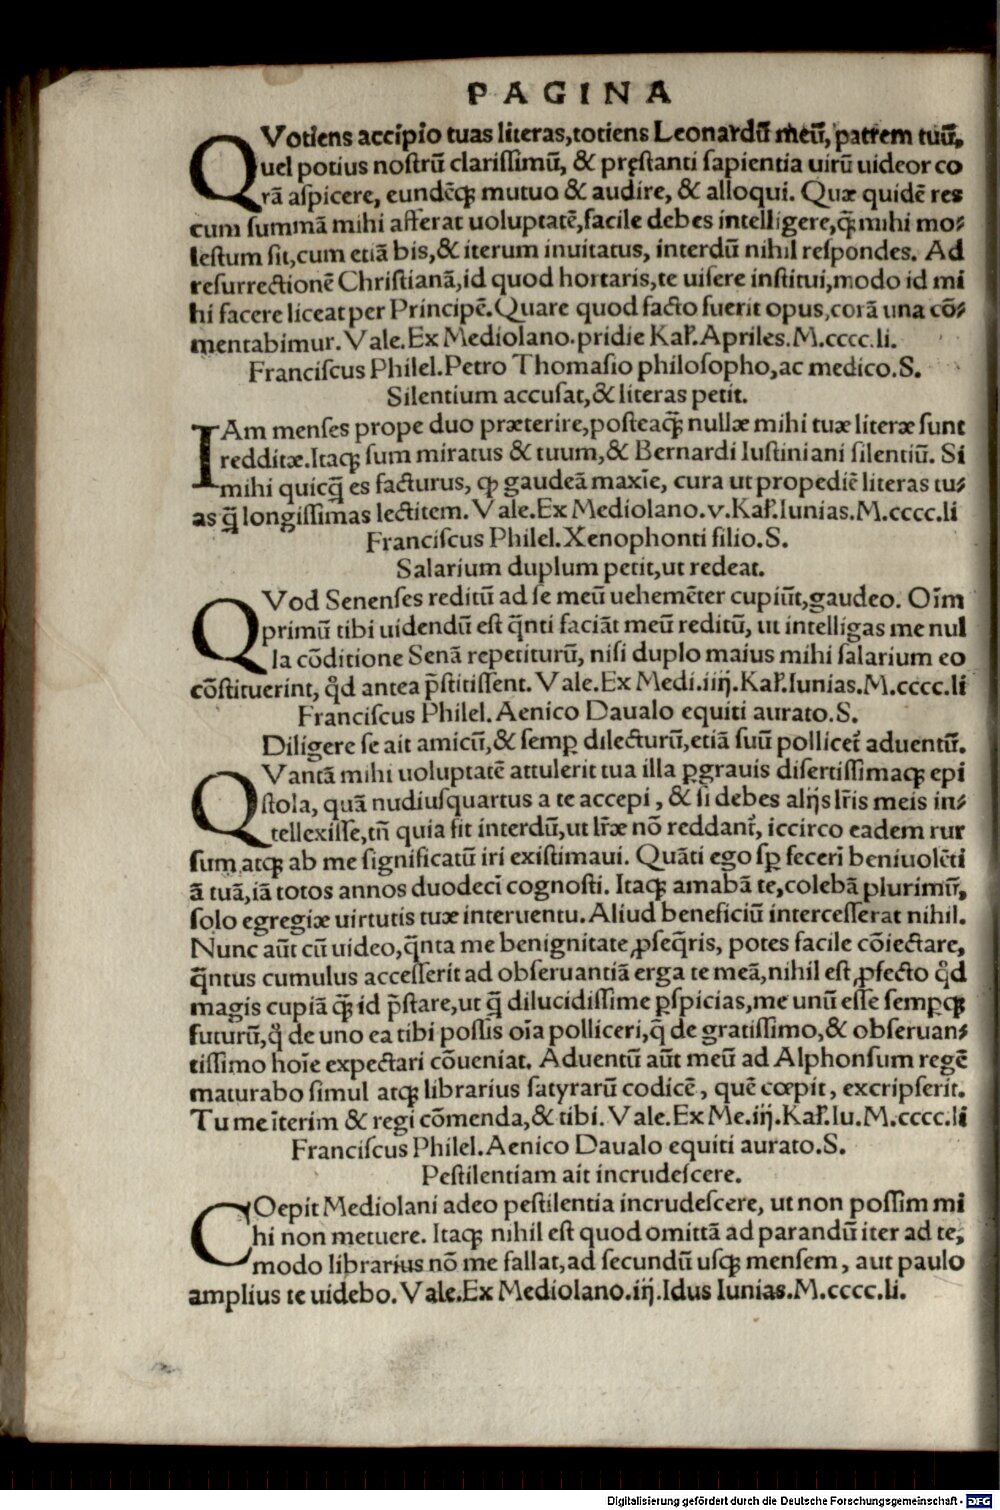 PAGINA
QVotiens accipio tuas literas,totiens Leonardū meū, patrem tuū,
uel potius nostrū clarissimū, & pręstanti sapientia uirū uideor co
rā aspicere, eundēqꝫ mutuo & audire, & alloqui. Quæ quidē res
cum summā mihi afferat uoluptatē,facile debes intelligere,q̄ꝫ mihi mo⸗
lestum sit,cum etiā bis,& iterum inuitatus, interdū nihil respondes. Ad
resurrectionē Christianā,id quod hortaris,te uisere institui,modo id mi
hi facere liceat per Principē.Quare quod facto fuerit opus,corā una cō⸗
mentabimur. Vale.Ex Mediolano.pridie Kaƚ.Apriles.M.cccc.li.
Franciscus Philel.Petro Thomasio philosopho,ac medico.S.
Silentium accusat,& literas petit.
IAm menses prope duo præterire,posteaqꝫ nullæ mihi tuæ literæ sunt
redditæ.Itaqꝫ sum miratus & tuum,& Bernardi Iustiniani silentiū. Si
mihi quicq̄ es facturus, ꝙ gaudeā maxīe, cura ut propediē literas tu⸗
as q̄ longissimas lectitem. Vale.Ex Mediolano.v.Kaƚ.Iunias.M.cccc.li
Franciscus Philel.Xenophonti filio.S.
Salarium duplum petit,ut redeat.
QVod Senenses reditū ad se meū uehemēter cupiūt,gaudeo. Oīm
primū tibi uidendū est q̄nti faciāt meū reditū, ut intelligas me nul
la cōditione Senā repetiturū, nisi duplo maius mihi salarium eo
cōstituerint, qd̄ antea p̄stitissent. Vale.Ex Medi.iiij.Kaƚ.Iunias.M.cccc.li
Franciscus Philel. Aenico Daualo equiti aurato.S.
Diligere se ait amicū,& semꝑ dilecturū,etiā suū pollicet᷑ aduentū.
QVantā mihi uoluptatē attulerit tua illa ꝑgrauis disertissimaqꝫ epi
stola, quā nudiusquartus a te accepi, & si debes alijs lr̄is meis in⸗
tellexisse,tn̄ quia fit interdū,ut lr̄æ nō reddant᷑, iccirco eadem rur
sum atqꝫ ab me significatū iri existimaui. Quāti ego sꝑ fecerī beniuolēti
ā tuā,iā totos annos duodecī cognosti. Itaqꝫ amabā te,colebā plurimū,
solo egregiæ uirtutis tuæ interuentu.Aliud beneficiū intercesserat nihil.
Nunc aūt cū uideo,q̄nta me benignitate ꝓseq̄ris, potes facile cōiectare,
q̄ntus cumulus accesserit ad obseruantiā erga te meā,nihil est ꝓfecto qd̄
magis cupiā q̄ꝫ id p̄stare,ut q̄ dilucidissime ꝑspicias,me unū esse semꝑqꝫ
futurū,q̊ de uno ea tibi possis oīa polliceri,q̄ de gratissimo,& obseruan⸗
tissimo hoīe expectari cōueniat. Aduentū aūt meū ad Alphonsum regē
maturabo simul atqꝫ librarius satyrarū codicē, quē cœpit, excripserit.
Tu me īterim & regi cōmenda,& tibi. Vale.Ex Me.iij.Kaƚ.Iu.M.cccc.li
Franciscus Philel.Aenico Daualo equiti aurato.S.
Pestilentiam ait incrudescere.
COepit Mediolani adeo pestilentia incrudescere, ut non possim mi
hi non metuere. Itaqꝫ nihil est quod omittā ad parandū iter ad te,
modo librarius nō me fallat,ad secundū usqꝫ mensem, aut paulo
amplius te uidebo. Vale.Ex Mediolano.iij.Idus Iunias.M.cccc.li.
Digitalisierung gefördert durch die Deutsche Forschungsgemeinschaft - DFG